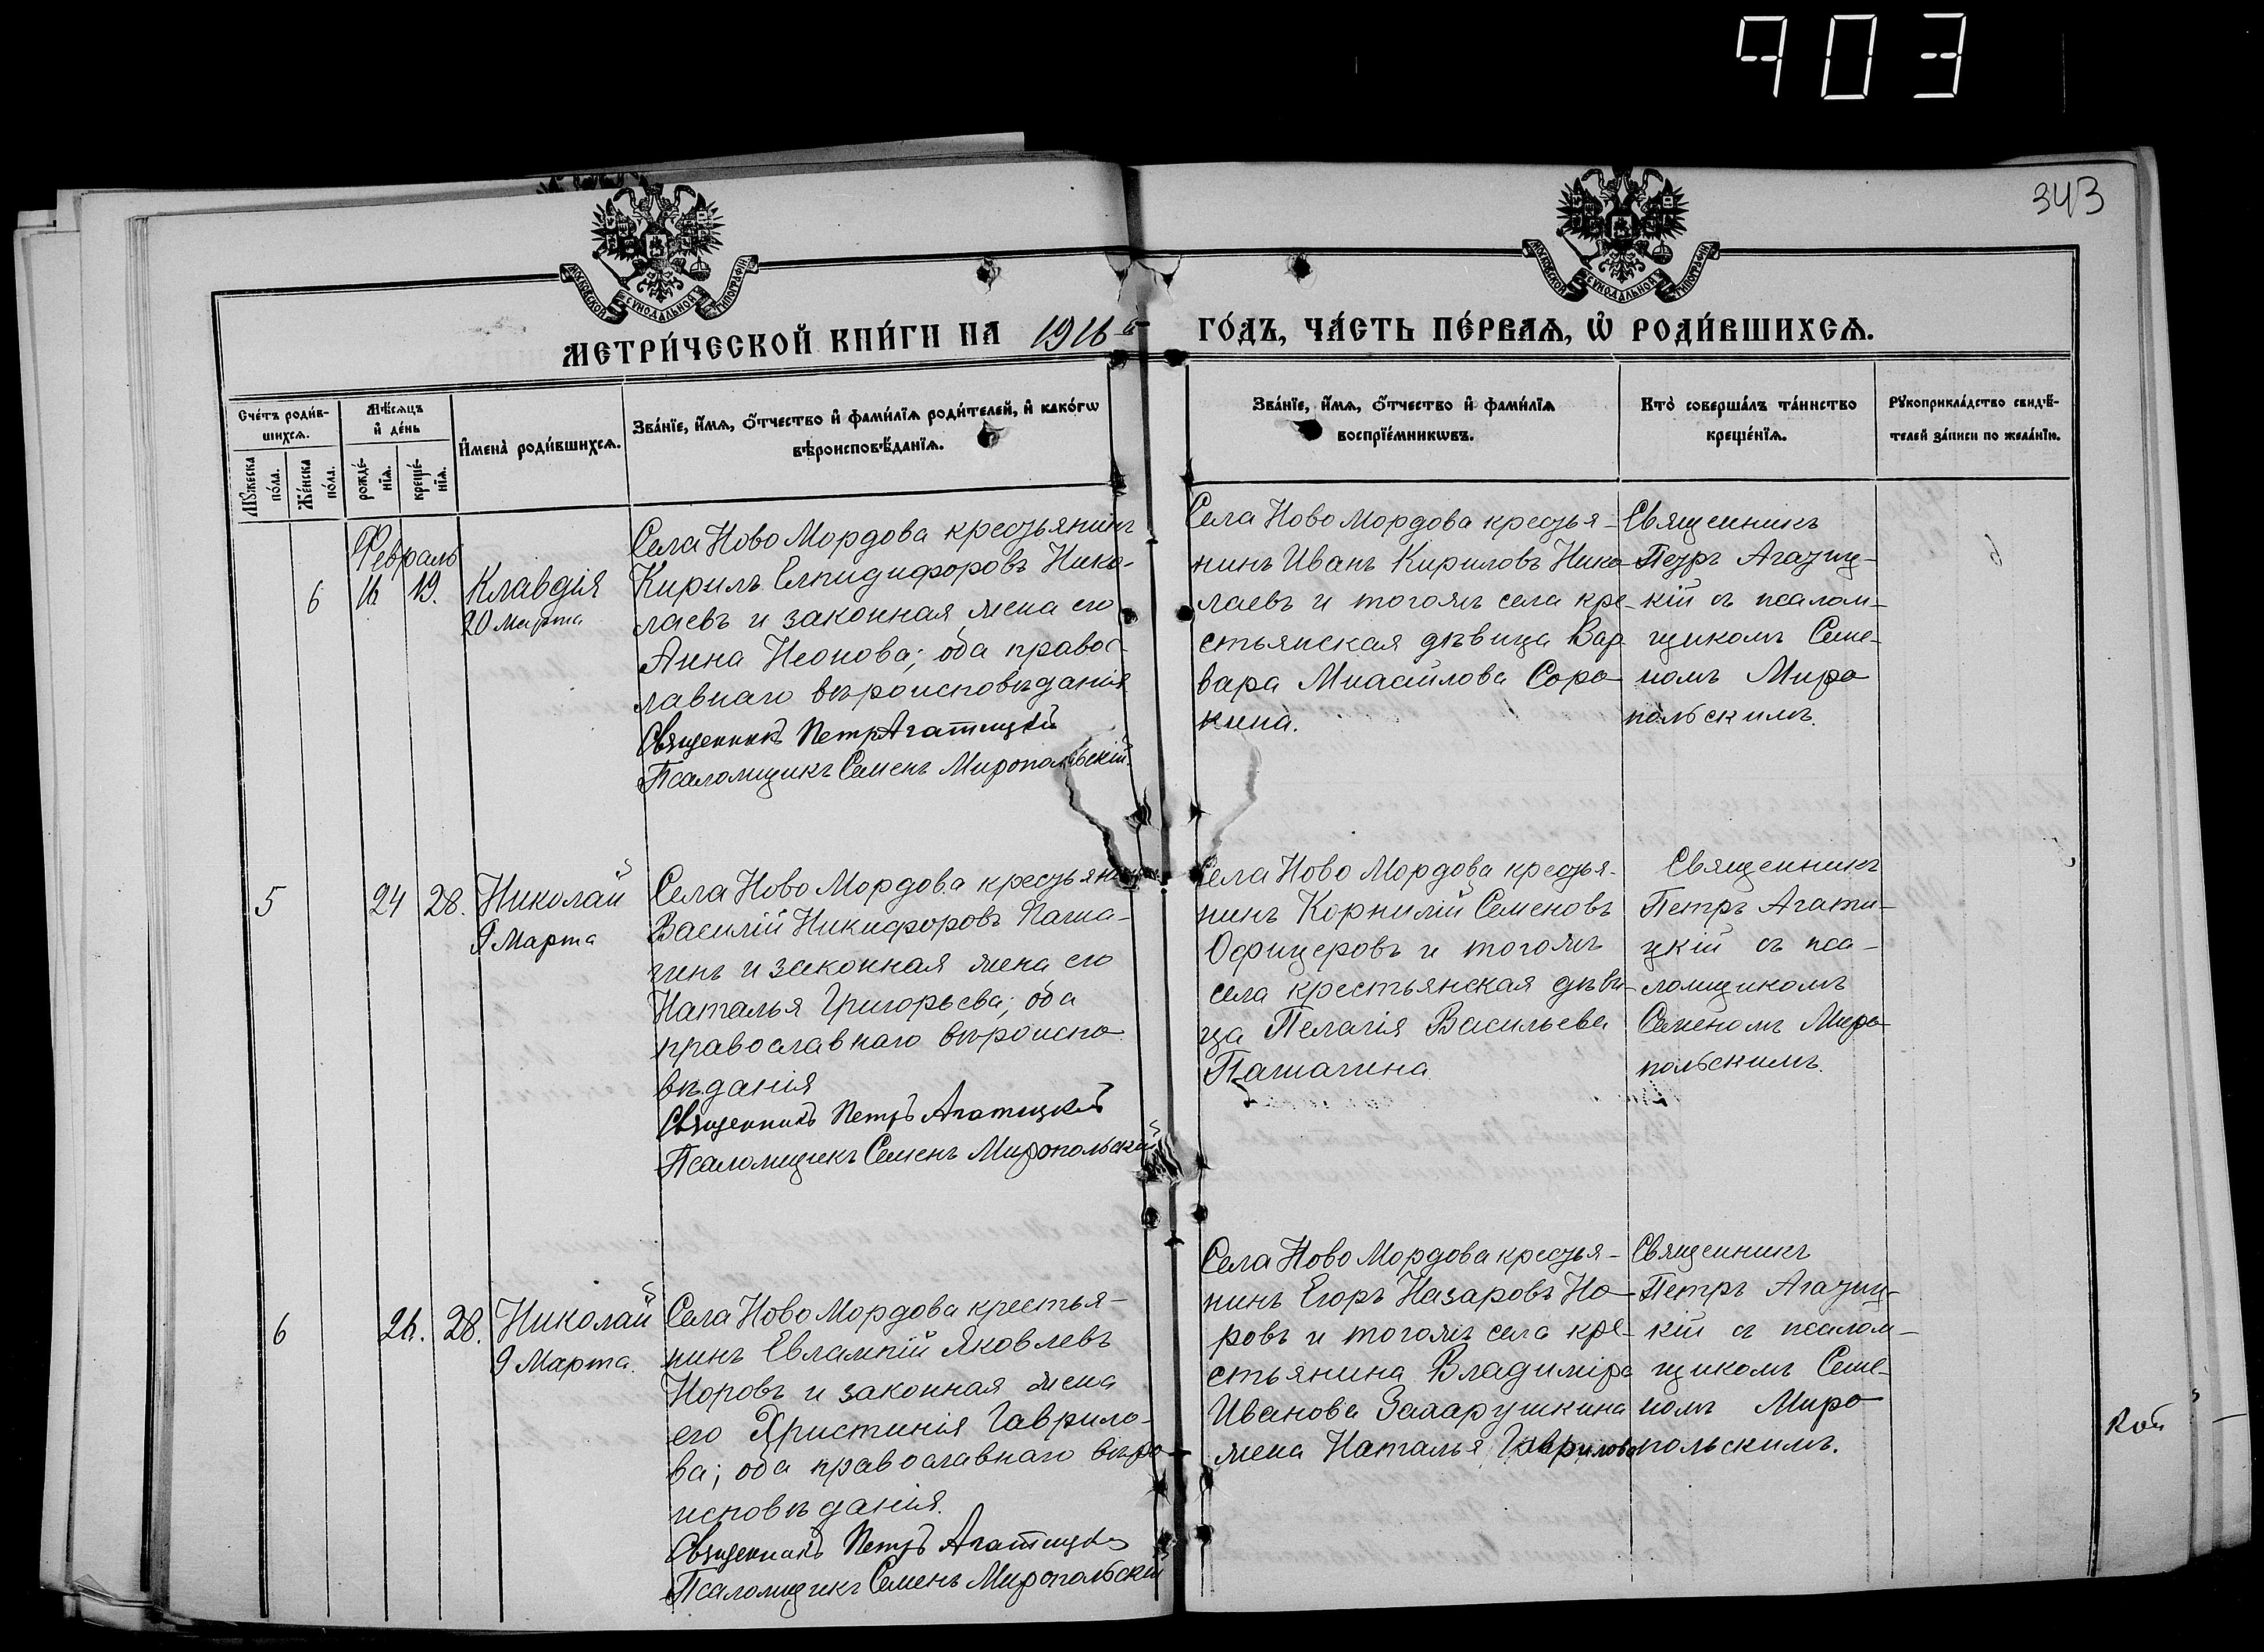 903
343
МОСКОВСКОЙ СУНОДАЛЬНОЙ ТИПОГРАФІИ
МОСКОВСКОЙ СУНОДАЛЬНОЙ ТИПОГРАФІИ
МЕТРИ́ЧЕСКОЙ КНИ́ГИ НА 1916 ГО́ДЪ, ЧА́СТЬ ПЕ́РВАѦ, Ѡ҆ РОДИ́ВШИХСѦ.
Сче́тъ роди́в-
шихсѧ.
Мꙋ́жеска
по́ла.
Же́нска
по́ла.
Мѣ́сѧцъ
и҆ де́нь
рожде́-
нїѧ.
креще́-
нїѧ.
И҆мена̀ роди́вшихсѧ.
Зва́нїе, и҆́мѧ, ѻ҆́тчество и҆ фамѝлїѧ роди́телей, и҆ како́гѡ
вѣроисповѣ́данїѧ.
Зва́нїе, и҆́мѧ, ѻ҆́тчество и҆ фами́лїѧ
воспрїе́мникѡвъ.
Кто̀ соверша́лъ та́инство
креще́нїѧ.
Рꙋкоприкла́дство свидѣ́-
телей за́писи по жела́нїю.
Февраль
6
16
19.
Клавдія
20 Марта
Села Ново Мордова крестьянинъ
Кирилъ Елпидифоровъ Нико-
лаевъ и законная жена его
Анна Іеонова; оба правос-
лавнаго вѣроисповѣданія
Священникъ Петръ Агатицкій
Псаломщикъ Семенъ Миропольскій.
Села Ново Мордова крестья-
нинъ Иванъ Кириловъ Нико-
лаевъ и тогожъ села кре-
стьянская дѣвица Вар-
вара Миаилова Соро-
кина.
Священникъ
Петръ Агатиц-
кій съ псалом-
щикомъ Семе-
номъ Миро
польскимъ.
5
24
28.
Николай
9 Марта
Села Ново Мордова крестьянинъ
Василій Никифоровъ Паша-
гинъ и законная жена его
Наталья Григорьева; оба
православнаго вѣроиспо
вѣданія
Священникъ Петръ Агатицкій
Псаломщикъ Семенъ Миропольскій
Села Ново Мордова крестья-
нинъ Корнилій Семеновъ
Офицеровъ и тогожъ
села крестьянская дѣви-
ца Пелагія Васильева
Пашагина
Священникъ
Петръ Агати-
цкій съ пса-
ломщикомъ
Семеномъ Миро-
польскимъ.
6
26.
28.
Николай
9 Марта.
Села Ново Мордова крестья-
нинъ Евлампій Яковлевъ
Норовъ и законная жена
его Христинія Гаврило-
ва; оба православнаго вѣро-
исповѣданія.
Священникъ Петръ Агатицкій
Псаломщикъ Семенъ Миропольскій
Села Ново Мордова крестья-
нинъ Егоръ Назаровъ Но-
ровъ и тогожъ села кре-
стьянина Владиміра
Иванова Захарушкина
жена Наталья Гаврилова
Священникъ
Петръ Агатиц-
кій съ псалом-
щикомъ Семе-
номъ Миро
польскимъ.
кой